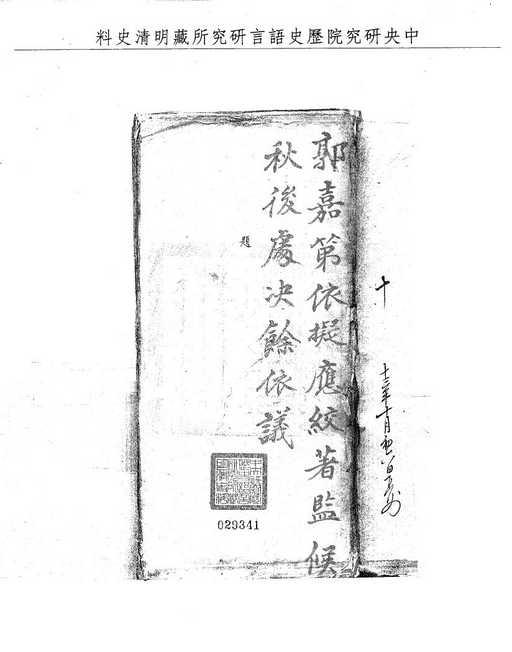 中央研究院歷史語言研究所藏明清史料
郭嘉第依擬應絞著監候
秋後處決餘依議
題
十
029341